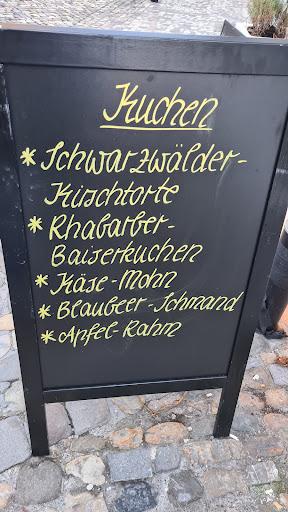 Kuchen
* Schwarzwälder-
Kirschtorte
* Rhabarber-
Baiserkuchen
* Käse-Mohn
* Blaubeer-Schmand
* Apfel-Rahm